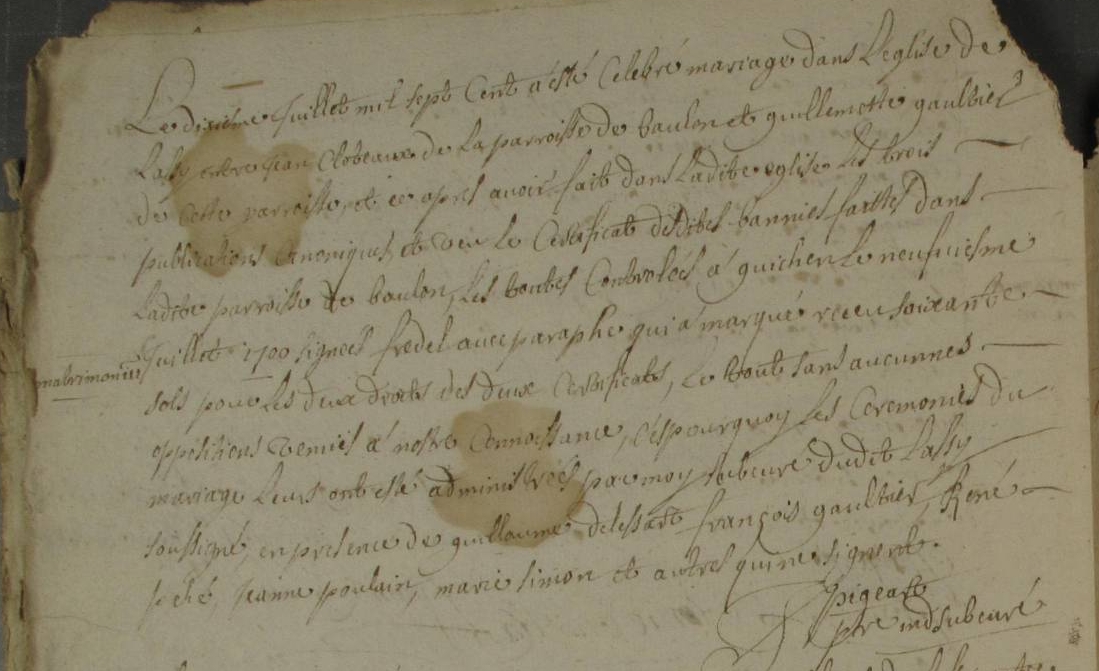 Le dixiesme Juillet mil sept Cent a esté Celebré mariage dans L'eglise de
Lassy entre jean Clobeaux de La parroisse de baulon et guillemette gaultier
de Cette parroisse, et ce apres avoir fait dans Ladite eglise Les trois
publications Canoniques, et veu Le Certificat desdites bannies faittes dans
Ladite parroisse de baulon, Les toutes Controlées a guichen Le neufviesme
Juillet 1700 signees fredel avec paraphe qui a marqué receu soixante
matrimonium
sols pour Les deux droits des deux Certificats, Le tout sans aucunnes
oppositions venues a nostre Connoissance, C'espourquoy Les Ceremonies du
mariage Leurs ont esté administrées par moy subcure dudit Lassy
soussigné, en presence de guillaume delessart françois gaultier, René
peché, Jeanne poulain, marie simon et autres qui ne signent.
pigeart
pre ind subcuré